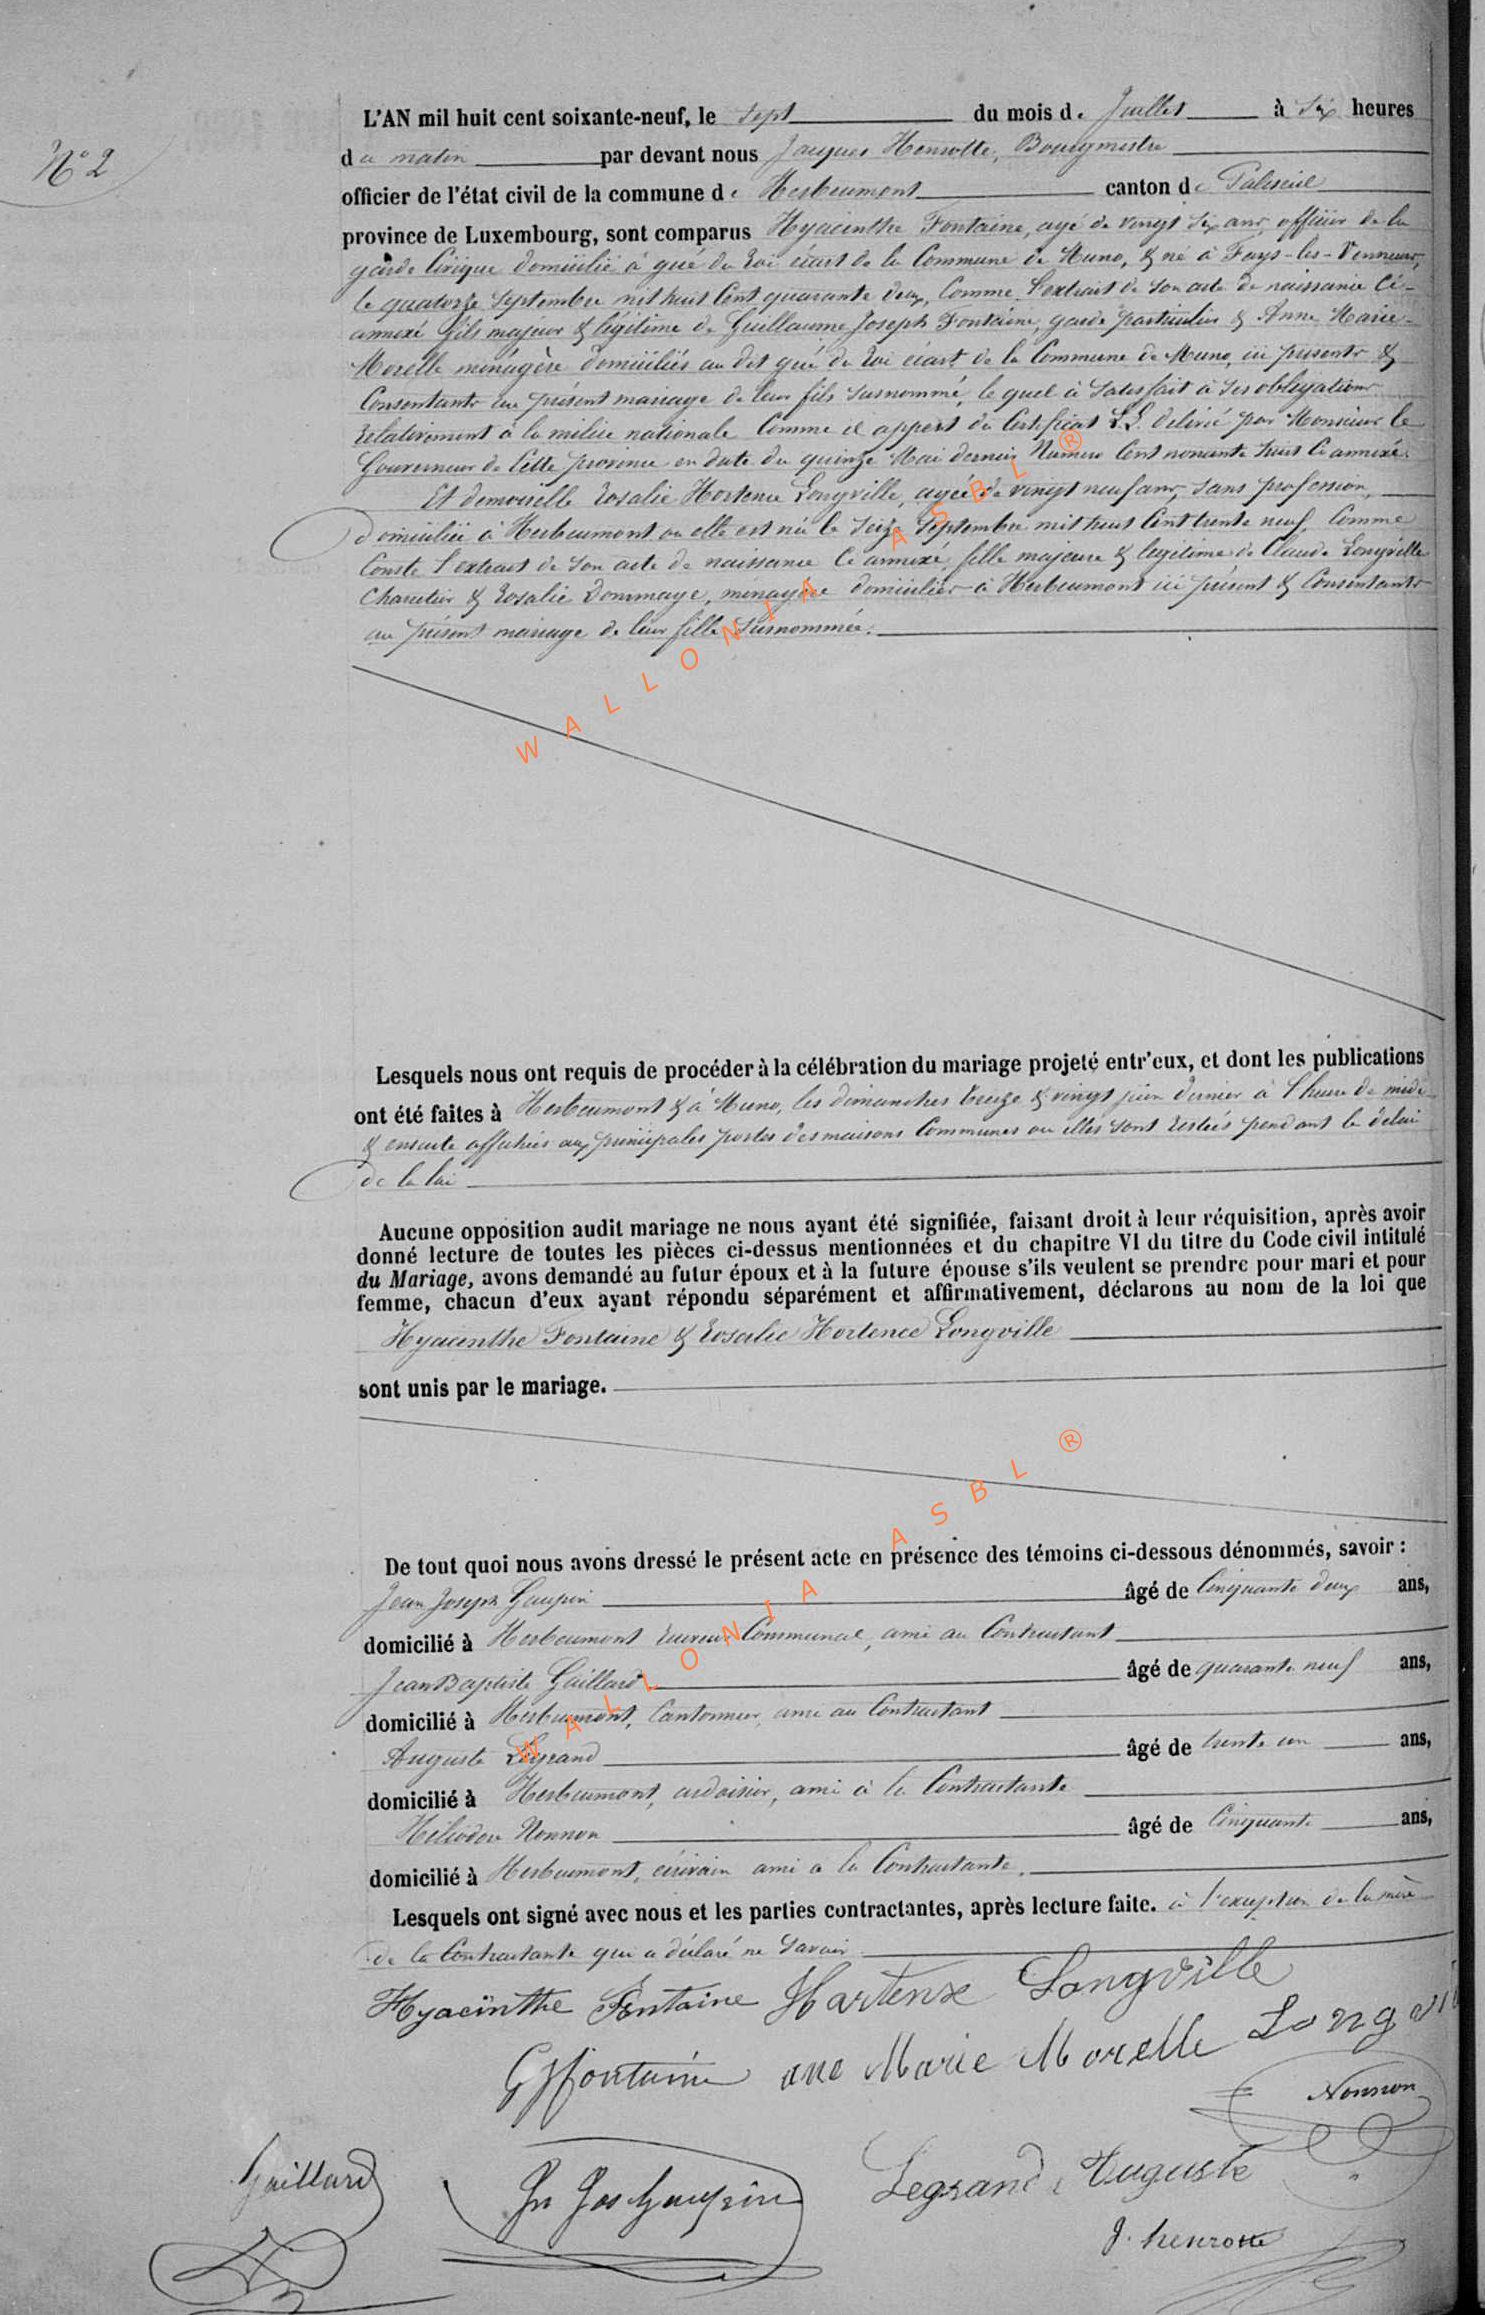 N° 2
L'AN mil huit cent soixante-neuf, le sept du mois de Juillet à six heures
du matin par devant nous Jacques Henrotte, Bourgmestre
officier de l'état civil de la commune de Herbeumont canton de Paliseul
province de Luxembourg, sont comparus Hyacinthe Fontaine, agé de vingt six ans, officier de la
garde Civique domicilié à gué du Roi écart de la Commune de Muno, & né à Fays-les-Veneurs,
le quatorze Septembre mil huit Cent quarante deux, Comme l'extrait de son acte de naissance Ci-
annexé fils majeur & légitime de Guillaume Joseph Fontaine, garde particulier & Anne Marie
Morelle ménagère domiciliés au dit gué du Roi écart de la Commune de Muno, ici présents &
Consentants au présent mariage de leur fils susnommé, le quel à satisfait à ses obligations
relativement à la milice nationale Comme il appert du Certificat L.L. délivré par Monsieur le
Gouverneur de Cette province en date du quinze Mai dernier Numero Cent nonante huit Ci annexé.
Et demoiselle Rosalie Hortence Longville, agée de vingt neuf ans, sans profession,
domiciliée à Herbeumont ou elle est née le seize Septembre mil huit Cent trente neuf, Comme
Conste l'extrait de son acte de naissance Ci annexé, fille majeure & legitime de Claude Longville
Charretier & Rosalie Dommage, ménagère domiciliés à Herbeumont ici présent & Consentants
au présent mariage de leur fille susnommée.
WALLONIA ASBL ®
Lesquels nous ont requis de procéder à la célébration du mariage projeté entr'eux, et dont les publications
ont été faites à Herbeumont & à Muno, les dimanches treize & vingt juin dernier à l'heure de midi
& ensuite affichées aux principales portes des maisons Communes ou elles sont restées pendant le délai
de la loi
Aucune opposition audit mariage ne nous ayant été signifiée, faisant droit à leur réquisition, après avoir
donné lecture de toutes les pièces ci-dessus mentionnées et du chapitre VI du titre du Code civil intitulé
du Mariage, avons demandé au futur époux et à la future épouse s'ils veulent se prendre pour mari et pour
femme, chacun d'eux ayant répondu séparément et affirmativement, déclarons au nom de la loi que
Hyacinthe Fontaine & Rosalie Hortence Longville
sont unis par le mariage.
De tout quoi nous avons dressé le présent acte en présence des témoins ci-dessous dénommés, savoir :
Jean Joseph Gaupin âgé de Cinquante deux ans,
domicilié à Herbeumont receveur Communal, ami au Contractant
Jean Baptiste Gaillard âgé de quarante neuf ans,
domicilié à Herbeumont, Cantonnier, ami au Contractant
Auguste Legrand âgé de trente un ans,
domicilié à Herbeumont, ardoisier, ami à la Contractante
Héliodore Nonnon âgé de Cinquante ans,
domicilié à Herbeumont, écrivain ami à la Contractante.
Lesquels ont signé avec nous et les parties contractantes, après lecture faite. à l'exception de la mère
de la Contractante qui a déclaré ne savoir
WALLONIA ASBL ®
Hyacinthe Fontaine Hortense Longville
GJfontaine ane Marie Morelle Longvil
Nonnon
Gaillard Jn Jos Gaupin Legrand Auguste
J. henrotte